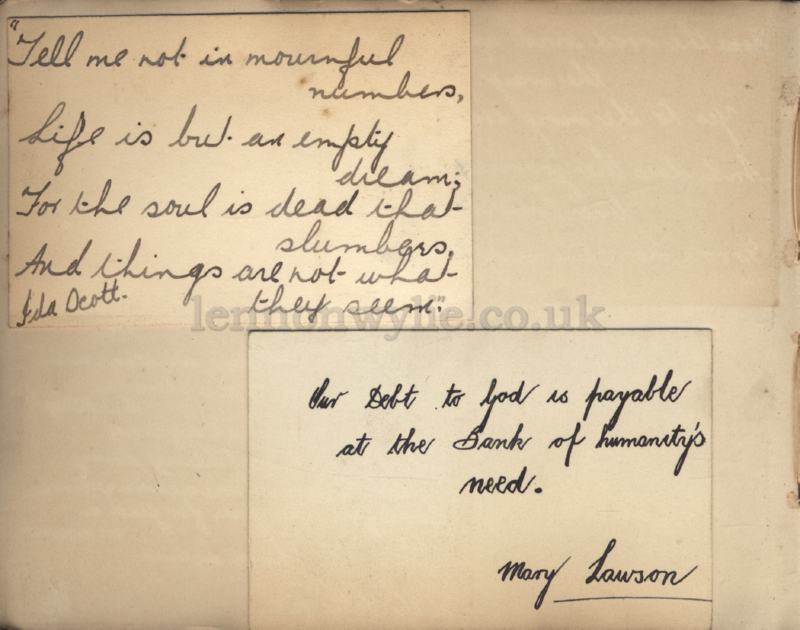 "Tell me not in mournful
numbers,
Life is but an empty
dream;
For the soul is dead that
slumbers,
And things are not what
they seem."
Ida Scott.
lennonwylie.co.uk
Our Debt to God is payable
at the Bank of humanity's
need.
Mary Lawson